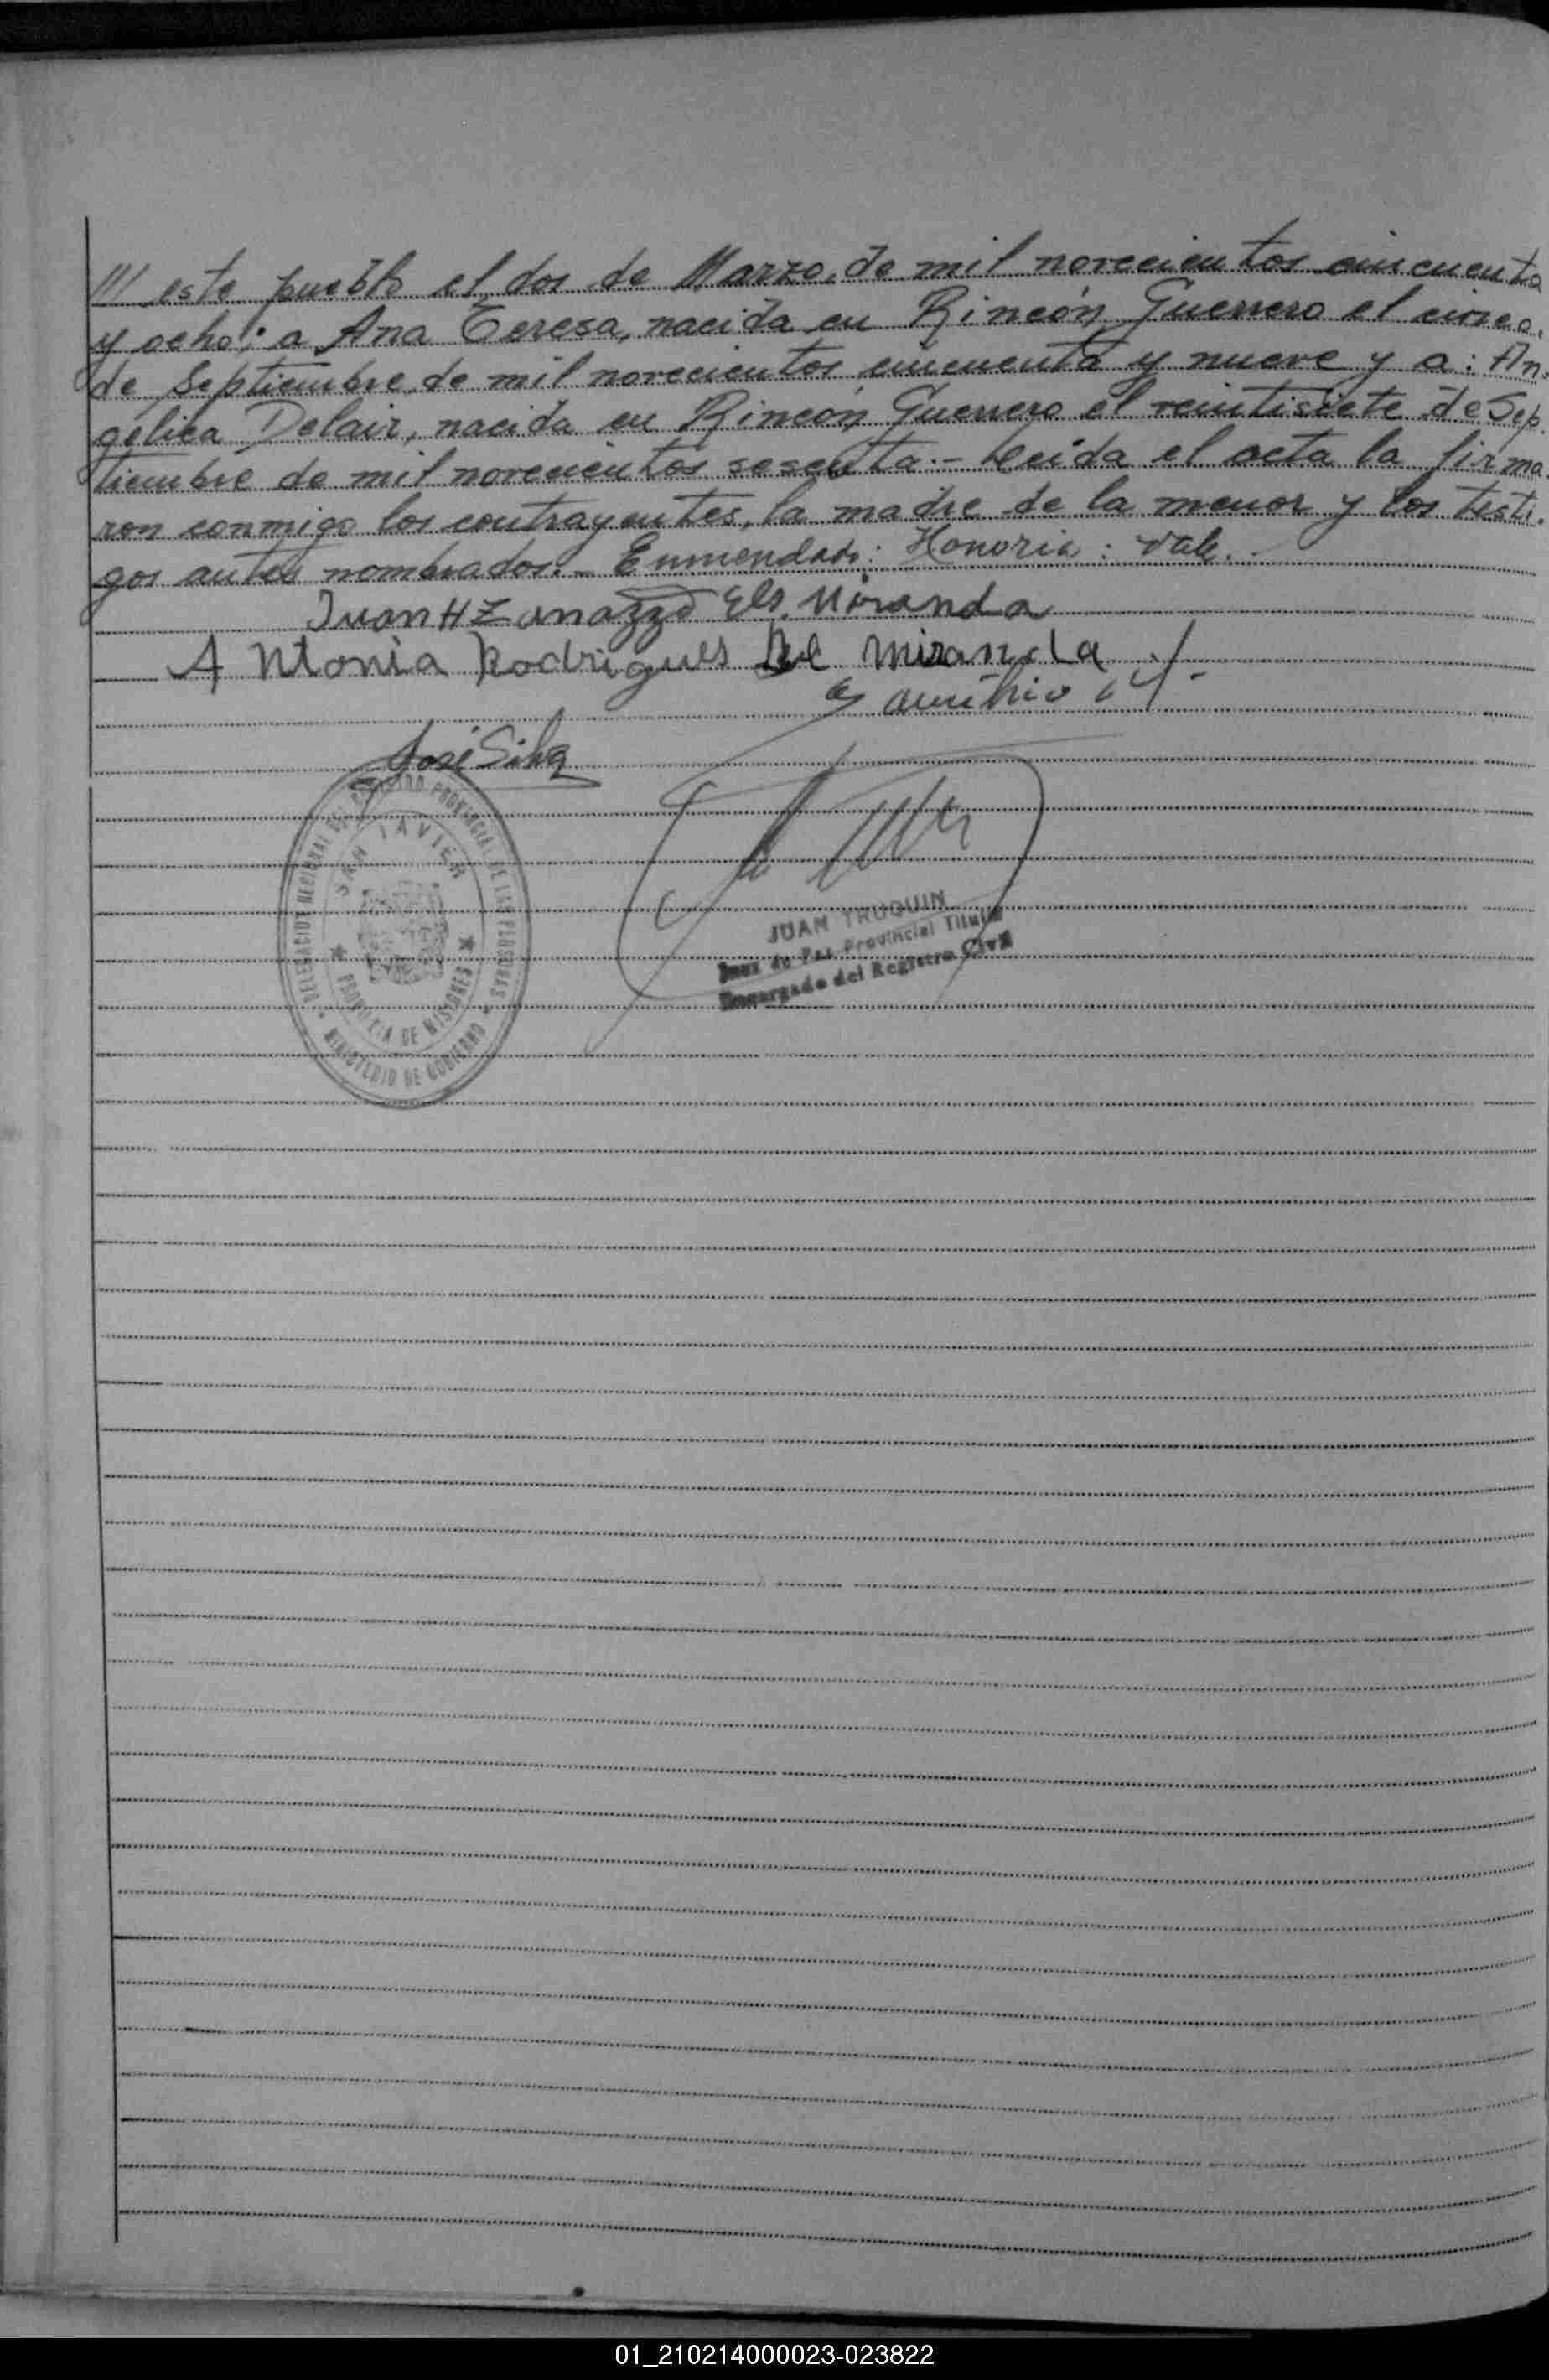 /// este pueblo el dos de Marzo, de mil novecientos cincuenta
y ocho; a Ana Teresa, nacida en Rincón Guerrero el cinco,
de Septiembre, de mil novecientos cincuenta y nueve y a: An-
gélica Delair, nacida en Rincón Guerrero el veintisiete de Sep-
tiembre de mil novecientos sesenta.- Leída el acta la firma-
ron conmigo los contrayentes, la madre de la menor y los testi-
gos antes nombrados.- Enmendado: Honoria: Vale.-
Juan H Zanazzo Els. Miranda
Antonia Rodrigues De Miranda
José Silva
DELEGACION REGIONAL DEL REGISTRO PROVINCIAL DE LAS PERSONAS
SAN JAVIER
PROVINCIA DE MISIONES
MINISTERIO DE GOBIERNO
JUAN TRUQUIN
Juez de Paz Provincial Titular
Encargado del Registro Civil
01_210214000023-023822